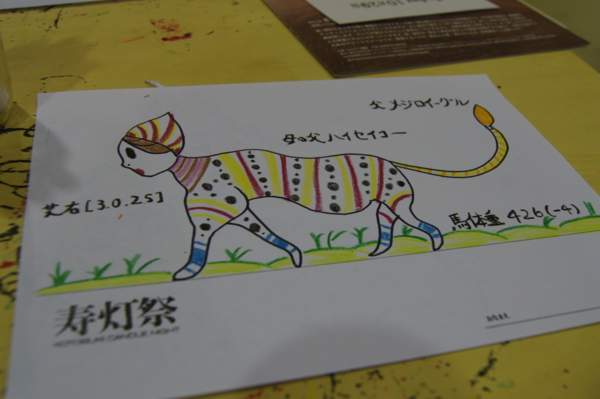 父 メジロイーグル
母の父 ハイセイコー
芝右[3.0.25]
馬体重 426(-4)
寿灯祭
KOTOBUKI CANDLE NIGHT